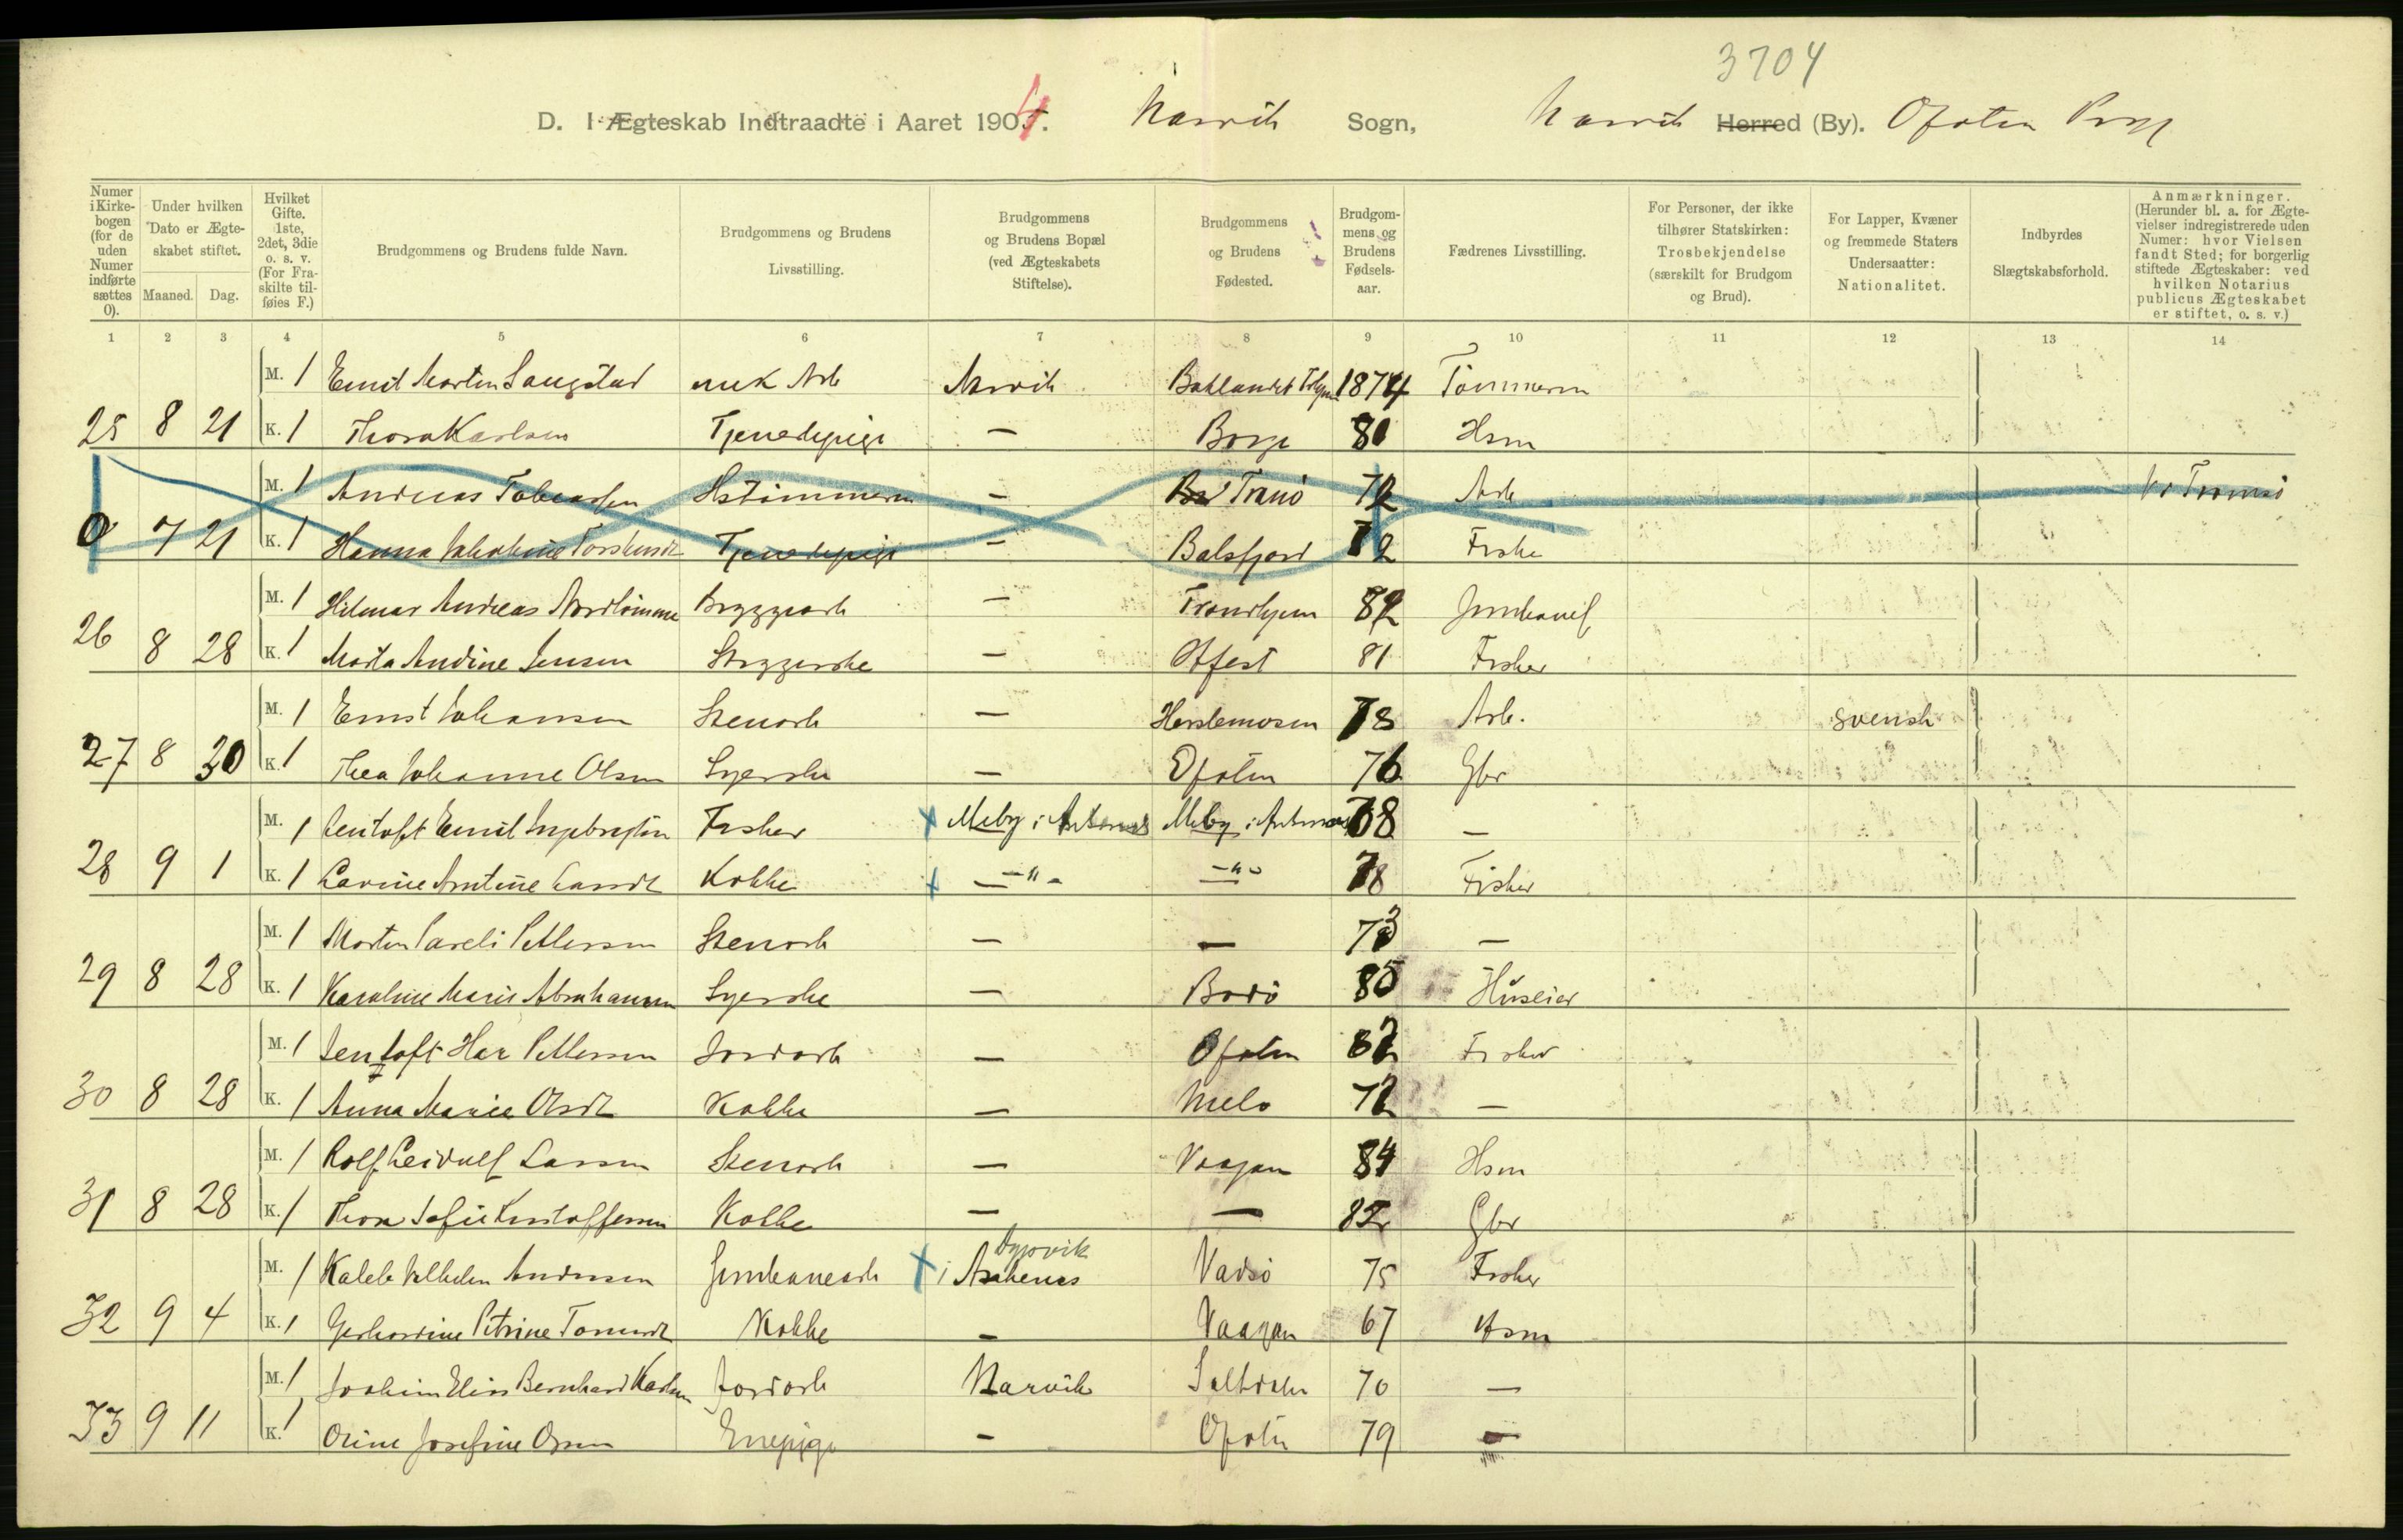 3704
D. I Ægteskab Indtraadte i Aaret 1904. Narvik Sogn, Narvik Herred (By). Ofoten Prgj
Numer i Kirkebogen (for de uden Numer indførte sættes 0).
Under hvilken Dato er Ægteskabet stiftet.
Maaned. Dag.
Hvilket Gifte. 1ste, 2det, 3die o. s. v. (For Fraskilte tilføies F.)
Brudgommens og Brudens fulde Navn.
Brudgommens og Brudens Livsstilling.
Brudgommens og Brudens Bopæl (ved Ægteskabets Stiftelse).
Brudgommens og Brudens Fødested.
Brudgommens og Brudens Fødselsaar.
Fædrenes Livsstilling.
For Personer, der ikke tilhører Statskirken: Trosbekjendelse (særskilt for Brudgom og Brud).
For Lapper, Kvæner og fremmede Staters Undersaatter: Nationalitet.
Indbyrdes Slægtskabsforhold.
Anmærkninger. (Herunder bl. a. for Ægtevielser indregistrerede uden Numer: hvor Vielsen fandt Sted; for borgerlig stiftede Ægteskaber: ved hvilken Notarius publicus Ægteskabet er stiftet, o. s. v.)
1 2 3 4 5 6 7 8 9 10 11 12 13 14
M. 1 Emil Morten Laugstad mek Arb Narvik Baklandet Thjem 1874 Tømmerm
25 8 21 K. 1 Thora Karlsen Tjenestepige — Borge 80 Hsm
M. 1 Andreas Tobiassen Hstømmerm — Tranö 72 Arb Tromsö
0 7 21 K. 1 Hanna Jakobine Tjenestepige — Balsfjord 72 Fisker
M. 1 Hilmar Andreas Bryggearb — Trondhjem 82
26 8 28 K. 1 Marta Andine Jensen Strygerske — 81 Fisker
M. 1 Ernst Johansen Stenarb — 78 Arb. svensk
27 8 30 K. 1 Thea Johanne Olsen Syerske — Ofoten 76 Gbr
M. 1 Jentoft Emil Ingebrigtsen Fisker Melby i Melby i 68 —
28 9 1 K. 1 Lavine Antine Larsdt Kokke — " — — " — 78 Fisker
M. 1 Morten Pareli Pettersen Stenarb — — 73 —
29 8 28 K. 1 Karoline Marie Abrahamsen Syerske — Bodö 85 Huseier
M. 1 Jentoft Har Pettersen Jordarb — Ofoten 82 Fisker
30 8 28 K. 1 Anna Marie Olsdt Kokke — Melö 72 —
M. 1 Rolf Leidulf Larsen Stenarb — Vaagan 84 Hsm
31 8 28 K. 1 Thora Sofie Kristoffersen Kokke — — 82 Gbr
Dypvik
M. 1 Kaleb Vilhelm Andersen Jernbanearb i Ankenes Vadsö 75 Fisker
32 9 4 K. 1 Gerhardine Petrine Kokke — Vaagan 67 Hsm
M. 1 Joakim Elias Bernhard Karlsen Jordarb Narvik Saltdalen 70 —
33 9 11 K. 1 Oline Josefine Olsen Enepige — Ofoten 79 —